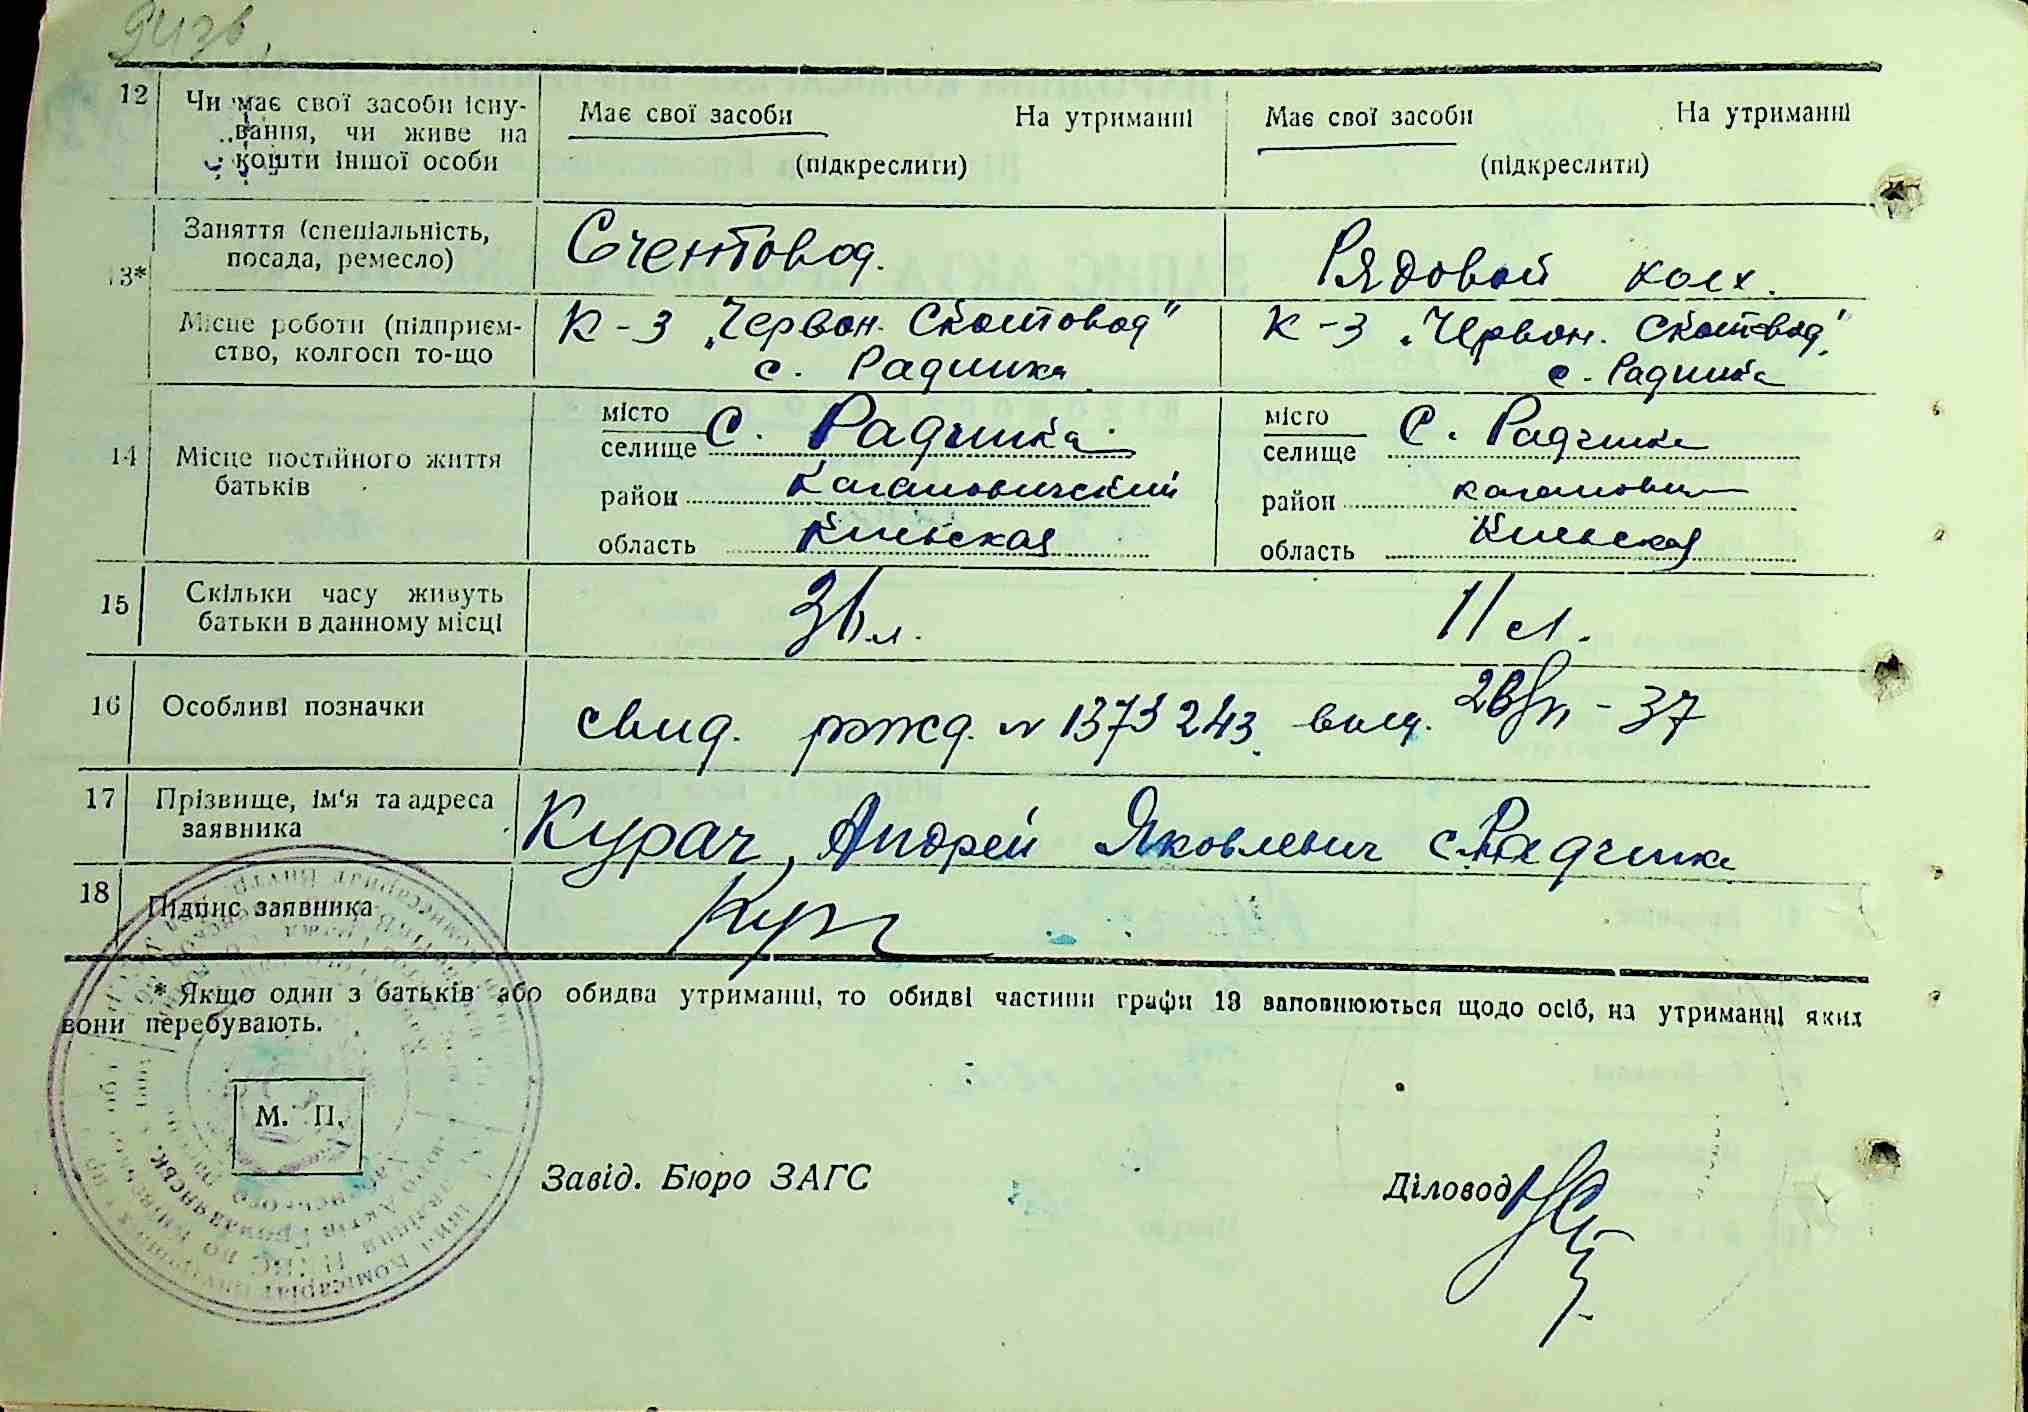 12 Чи має свої засоби існу-
вання, чи живе на
кошти іншої особи
Має свої засоби На утриманні
(підкреслити)
Має свої засоби На утриманні
(підкреслити)
13* Заняття (спеціальність,
посада, ремесло)
Счентовод.
Рядовой колх.
Місце роботи (підприєм-
ство, колгосп то-що
К-з „Червон. Скотовод"
с. Радчика
К-з „Червон. Скотовод"
с. Радчика
14 Місце постійного життя
батьків
місто
селище с. Радчика
район Кагановический
область Киевская
місто
селище с. Радчика
район
область Киевская
15 Скільки часу живуть
батьки в данному місці
36 л.
11 л.
16 Особливі позначки
свид. рожд. № 1373243 выд. - 37
17 Прізвище, ім'я та адреса
заявника
Курач, Андрей Яковлевич с. Радчика
18 Підпис заявника
* Якщо один з батьків або обидва утриманні, то обидві частини графи 13 заповнюються щодо осіб, на утриманні яких
вони перебувають.
М. П.
Завід. Бюро ЗАГС
Діловод